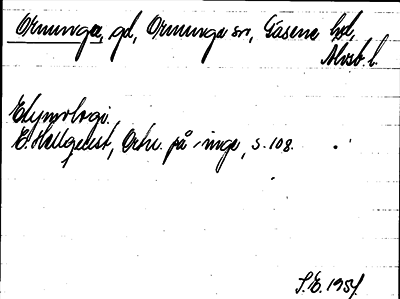 Ormunga, gd, Ormunga sn, Gäsene hd,
Älvsb. l.
Etymologi.
E. Hellquist, Ortn. på -inge, s. 108.
S.E. 1954.